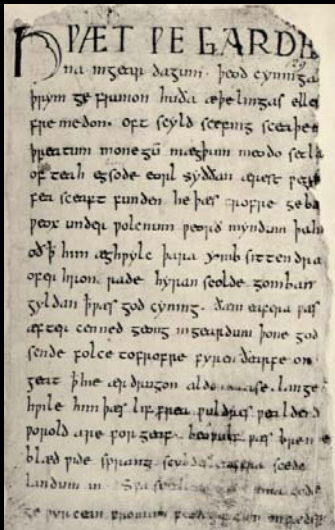 HǷÆT ǷE GARDE
na ingear dagum. þeod cyninga
þrym ge frunon huða æþelingas elle
fremedon. oft scyld scefing sceaþe
þreatum monegū mægþum meodo setla
of teah egsode eorl syððan ærest
sceaft funden he þæs frofre geba
ƿeox under ƿolcnum ƿeorð myndum þah
oðꝥ him æghƿylc þara ymb sittendra
ofer hron rade hyran scolde gomban
gyldan þæt ƿæs god cyning. ðæm eafera ƿæs
æfter cenned geong ingeardum þone god
sende folce tofrofre fyren ðearfe on
geat ær drugon aldor lange
hƿile him þæs lif frea ƿuldres ƿealdend
ƿorold are for geaf. beoƿulf ƿæs breme
blæd ƿide sprang scyldes eafera scede
landum in